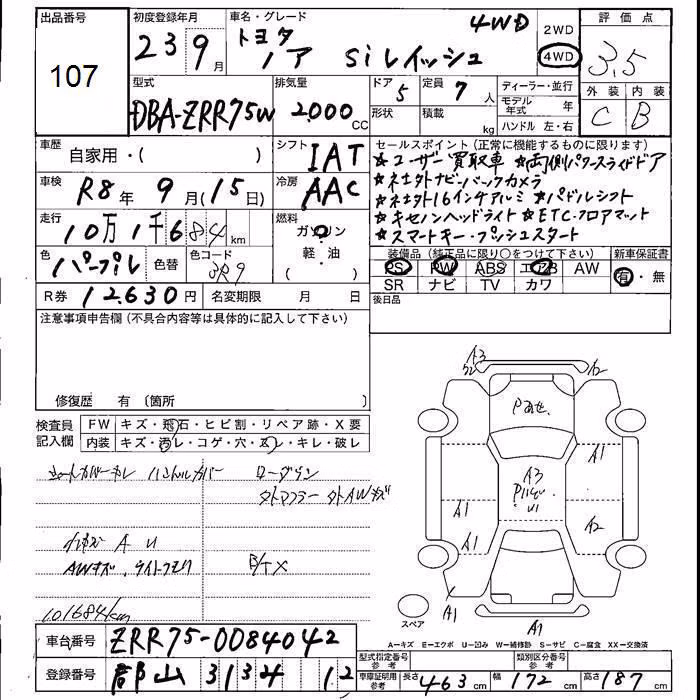 出品番号
107
初度登録年月
23 9月
車名・グレード
トヨタ
ノア Siレイッシュ
4WD
2WD
4WD
評価点
3.5
外装 内装
C B
型式
DBA-ZRR75W
排気量
2000 CC
ドア
5
定員
7人
形状
積載
kg
ディーラー・並行
モデル年式 年
ハンドル 左・右
車歴
自家用・( )
シフト
IAT
車検
R8年 9月(15日)
冷房
AAC
走行
10万1千684km
燃料
ガソリン
軽・油
( )
色
パープル
色替
色コード
3R9
R券
12630円
名変期限 月 日
セールスポイント(正常に機能するものに限ります)
★ユーザー買取車 ★両側パワースライドドア
★社外ナビ・バックカメラ
★社外16インチアルミ ★パドルシフト
★キセノンヘッドライト ★ETC・フロアマット
★スマートキー・プッシュスタート
装備品(純正品に限り○をつけて下さい)
新車保証書
PS PW ABS エアB AW
有・無
SR ナビ TV カワ
後日品
注意事項申告欄(不具合内容等は具体的に記入して下さい)
修復歴 有 〔箇所 〕
検査員記入欄
FW キズ・飛石・ヒビ割・リペア跡・X要
内装 キズ・汚レ・コゲ・穴・スレ・キレ・破レ
シートカバー ハンドルカバー
ローダウン
外マフラー 外AWキズ
小キズ A U
AWキズ、ライトクモリ
101684km
A3
A2
A1
A3
A1
A1
A2
A1
A1
スペア
A=キズ E=エクボ U=凹み W=補修跡 S=サビ C=腐食 XX=交換済
車台番号
ZRR75-0084042
登録番号
郡山 3134 12
型式指定番号
参考
類別区分番号
参考
車庫証明用
参考
長さ 463cm 幅 172cm 高さ 187cm